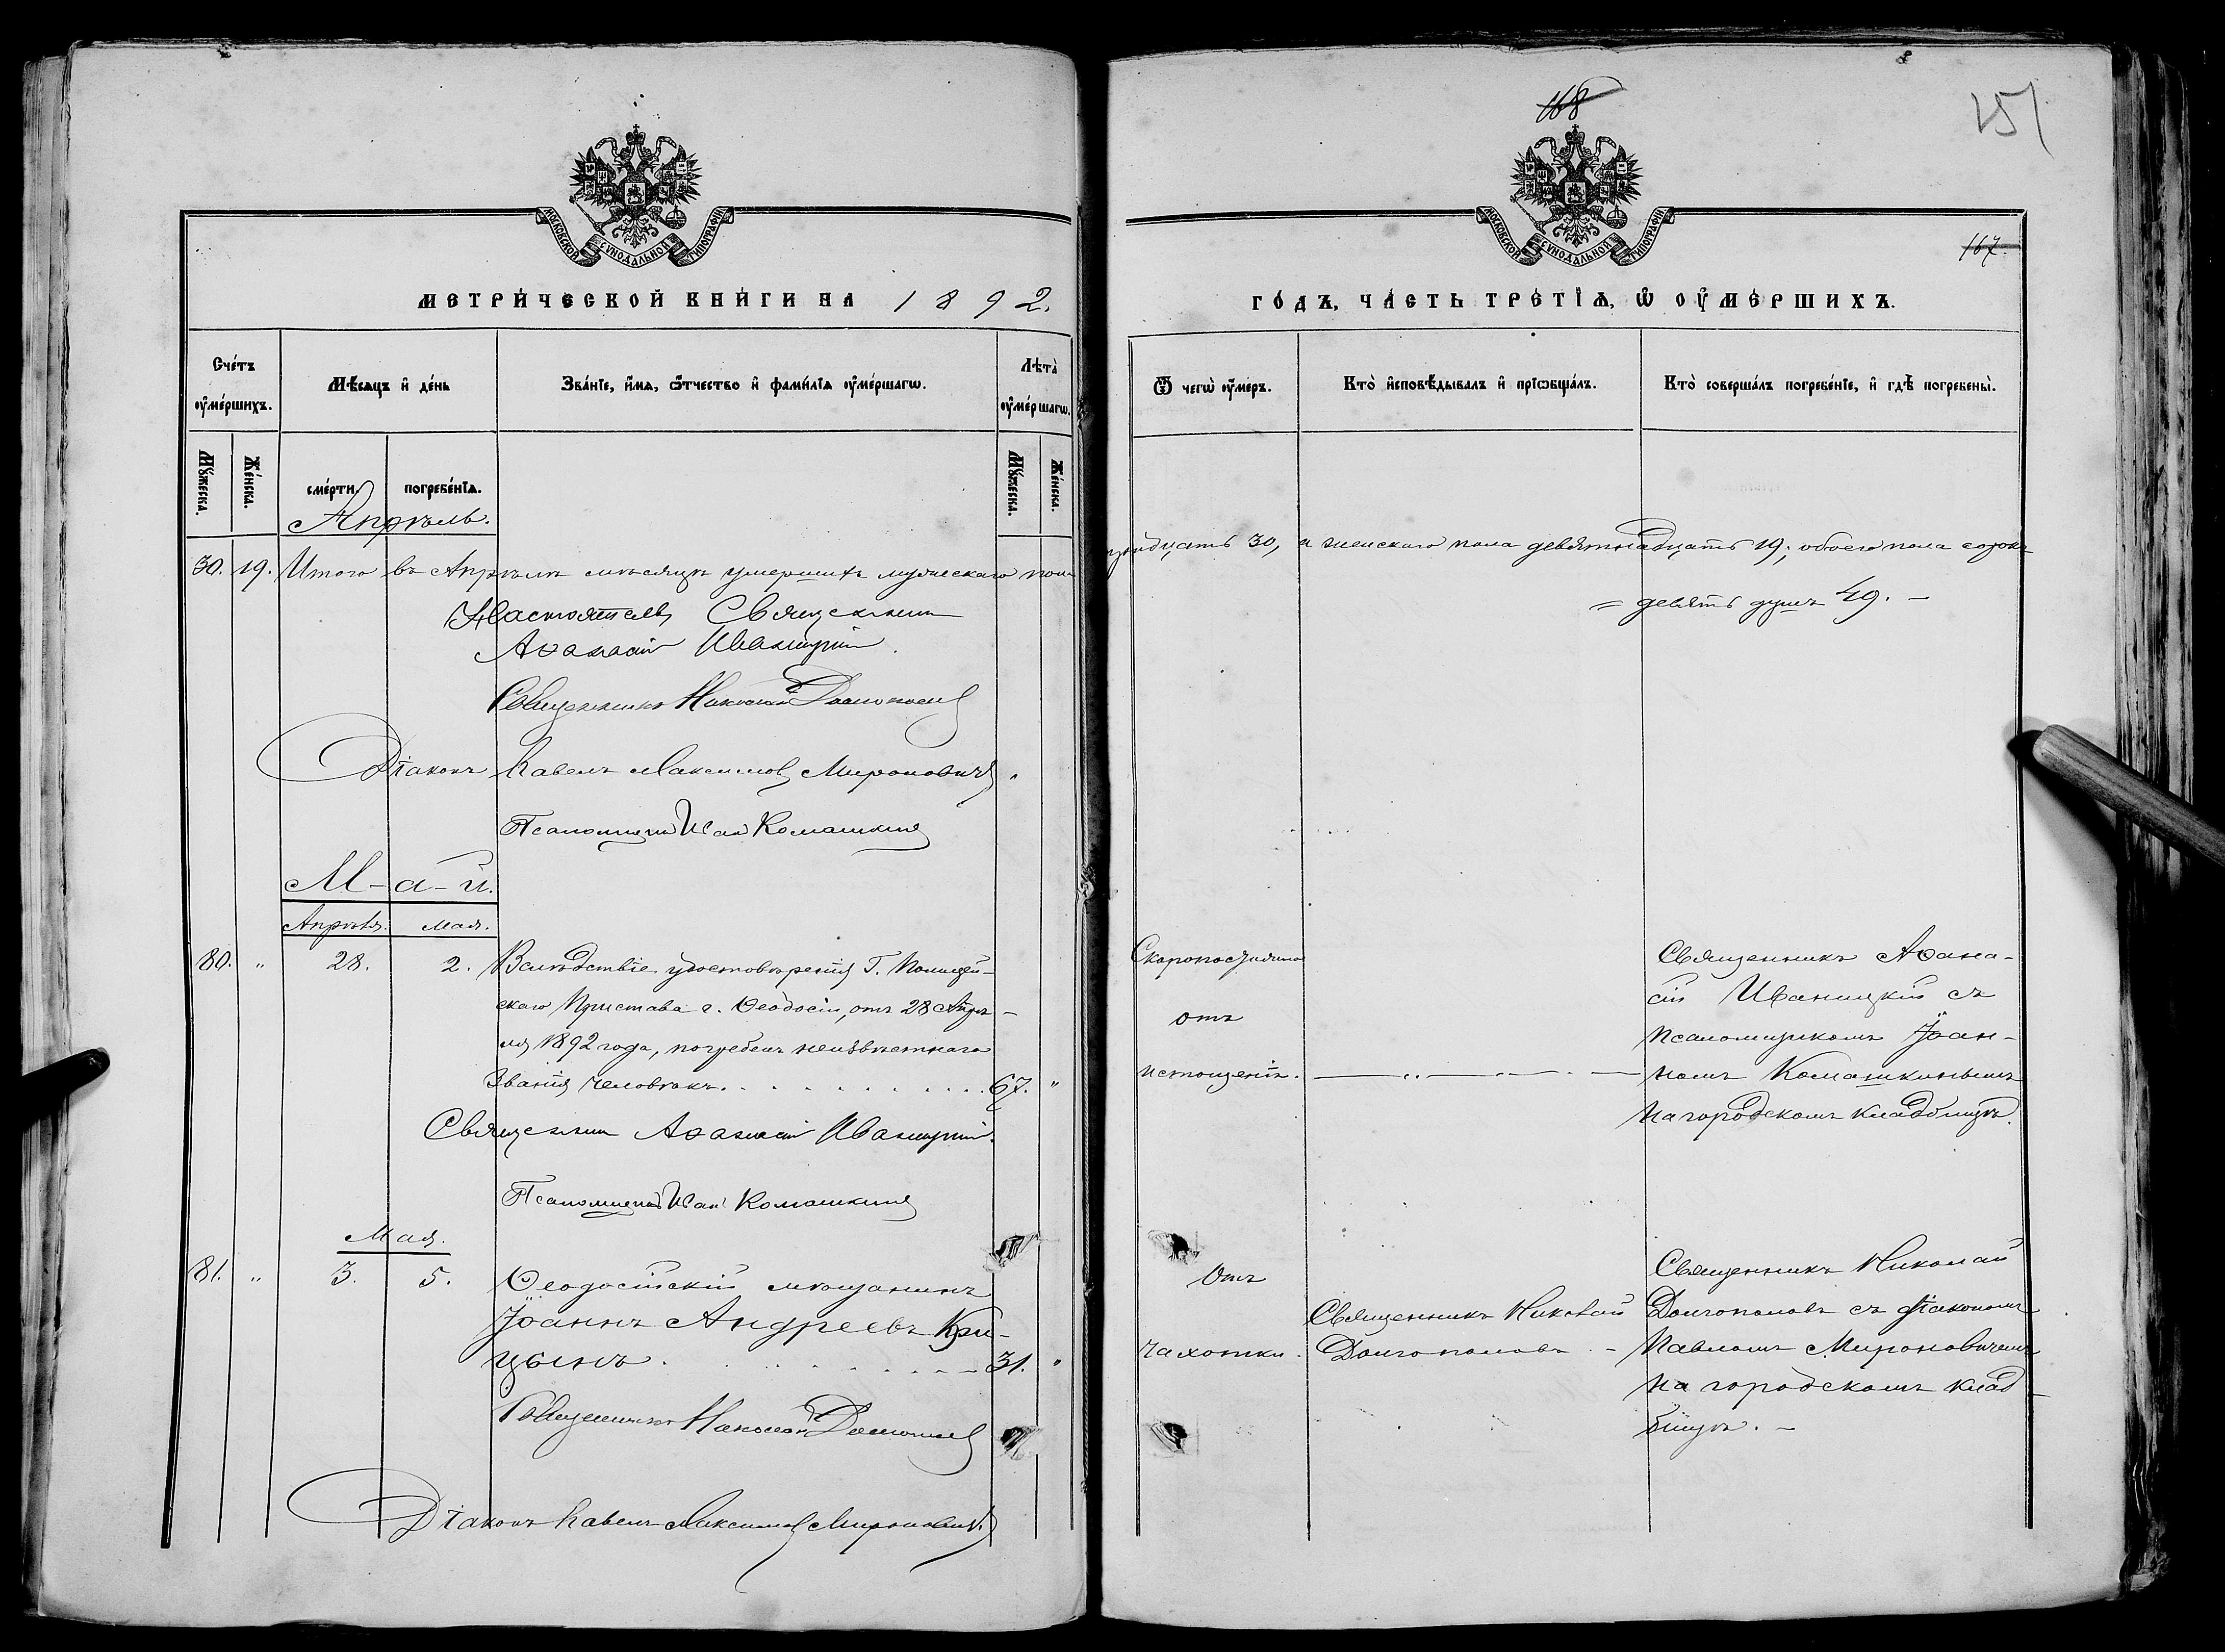 168
151
МОСКОВСКОЙ СѴНОДАЛЬНОЙ ТИПОГРАФІИ
МОСКОВСКОЙ СѴНОДАЛЬНОЙ ТИПОГРАФІИ
167.
МЕТРИ́ЧЕСКОЙ КНИ́ГИ НА 1892.
ГО́ДЪ, ЧА́СТЬ ТРЕ́ТІѦ, Ѡ҆ ОУ҆МЕ́РШИХЪ.
Сче́тъ оу҆ме́ршихъ.
Мѣ́сѧцъ и҆ де́нь
Зва́нїе, и҆́мѧ, ѻ҆́тчество и҆ фами́лїѧ оу҆ме́ршагѡ.
Лѣта̀ оу҆ме́ршагѡ.
Ѿ чегѡ̀ оу҆́меръ.
Кто̀ и҆сповѣ́дывалъ и҆ прїѡбща́лъ.
Кто̀ соверша́лъ погребе́нїе, и҆ гдѣ̀ погребены̀.
Мꙋ́жеска.
Же́нска.
сме́рти.
погребе́нїѧ.
Мꙋ́жеска.
Же́нска.
Апрѣль.
30. 19. Итого въ Апрѣлѣ мѣсяцѣ умершихъ мужескаго пола
тридцать 30, а женскаго пола девятнадцать 19; обоего пола сорокъ
= девять душъ 49. –
Настоятель Священникъ
Аѳанасій Иваницкій.
Священникъ Николай Долгополовъ
Діаконъ Павелъ Максимовъ Мироновичъ.
Псаломщикъ Иванъ Комашкинъ
М-а-й.
Апрѣля. Мая.
80. " 28. 2. Вслѣдствіе удостовѣренія Г. Полицей-
скаго Пристава г. Ѳеодосіи, отъ 28 Апрѣ-
ля 1892 года, погребенъ неизвѣстнаго
званія человѣкъ. 67. "
Скоропостижно
отъ
истощенія.
Священникъ Аѳана-
сій Иваницкій съ
псаломщикомъ Іоан-
номъ Комашкинымъ
на городскомъ кладбищѣ.
Священникъ Аѳанасій Иваницкій.
Псаломщикъ Иванъ Комашкинъ
Мая.
81. " 3. 5. Ѳеодосійскій мѣщанинъ
Іоаннъ Андреевъ Кри-
цынъ. 31. "
Отъ
чахотки.
Священникъ Николай
Долгополовъ. –
Священникъ Николай
Долгополовъ съ діакономъ
Павломъ Мироновичемъ
на городскомъ клад-
бищѣ. –
Священникъ Николай Долгополовъ
Діаконъ Павелъ Максимовъ Мироновичъ